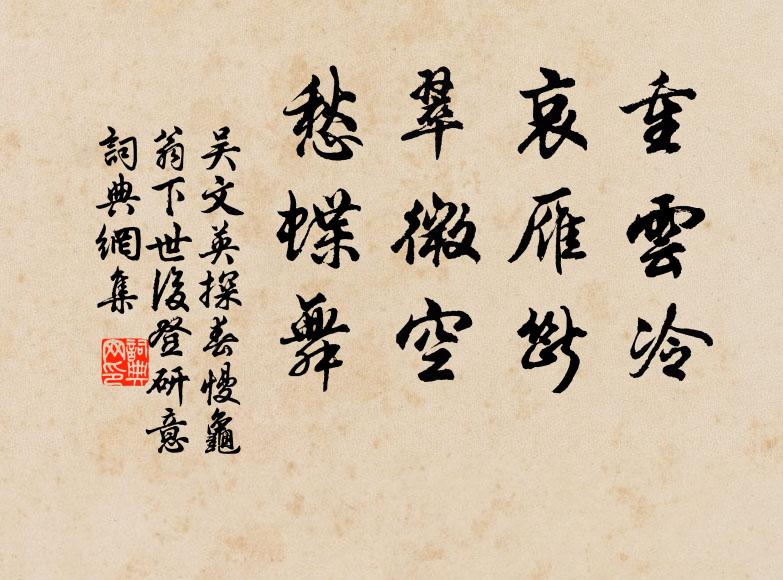 重雲冷
哀雁斷
翠微空
愁蝶舞
吳文英探春慢龜
翁下世後登研意
詞典網集
詞典
網印